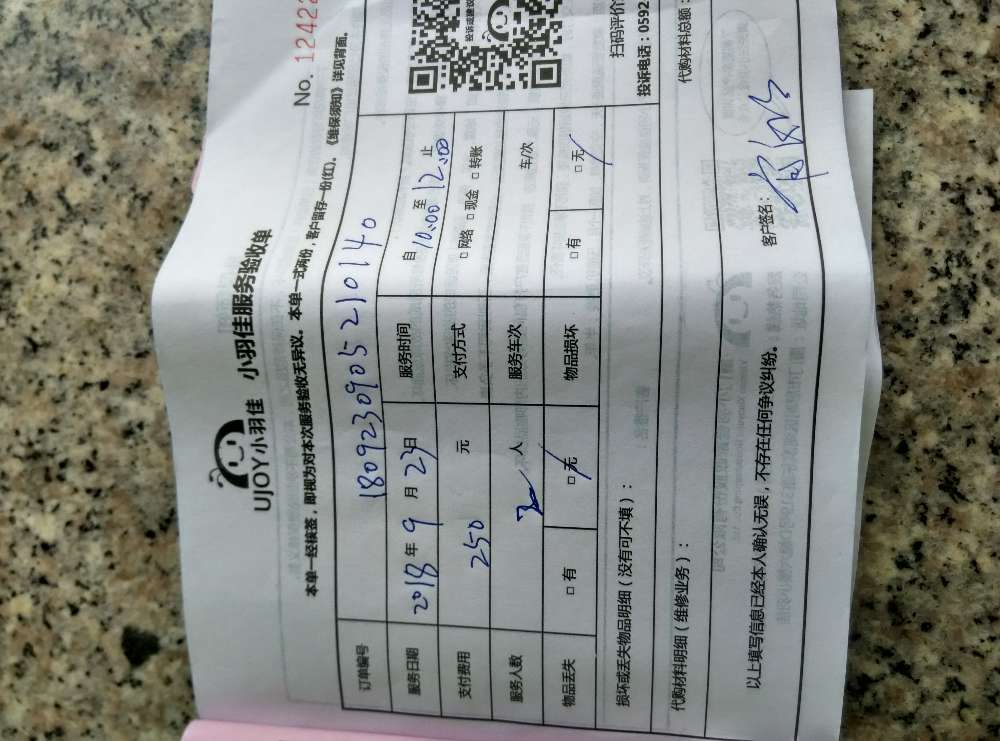 UJOY小羽佳 小羽佳服务验收单
No. 12422
本单一经核签，即视为对本次服务验收无异议。本单一式两份，客户留存一份(红)。《维保须知》详见背面。
订单编号 1809230905210140
服务日期 2018年9月23日 服务时间 自10:00至12:00止
支付费用 250元 支付方式 □网络 □现金 □转账
服务人数 2人 服务车次 车/次
物品丢失 □有 □无 物品损坏 □有 □无
损坏或丢失物品明细（没有可不填）：
扫码评价
投诉电话：0592
代购材料明细（维修业务）： 代购材料总额：
以上填写信息已经本人确认无误，不存在任何争议纠纷。 客户签名：